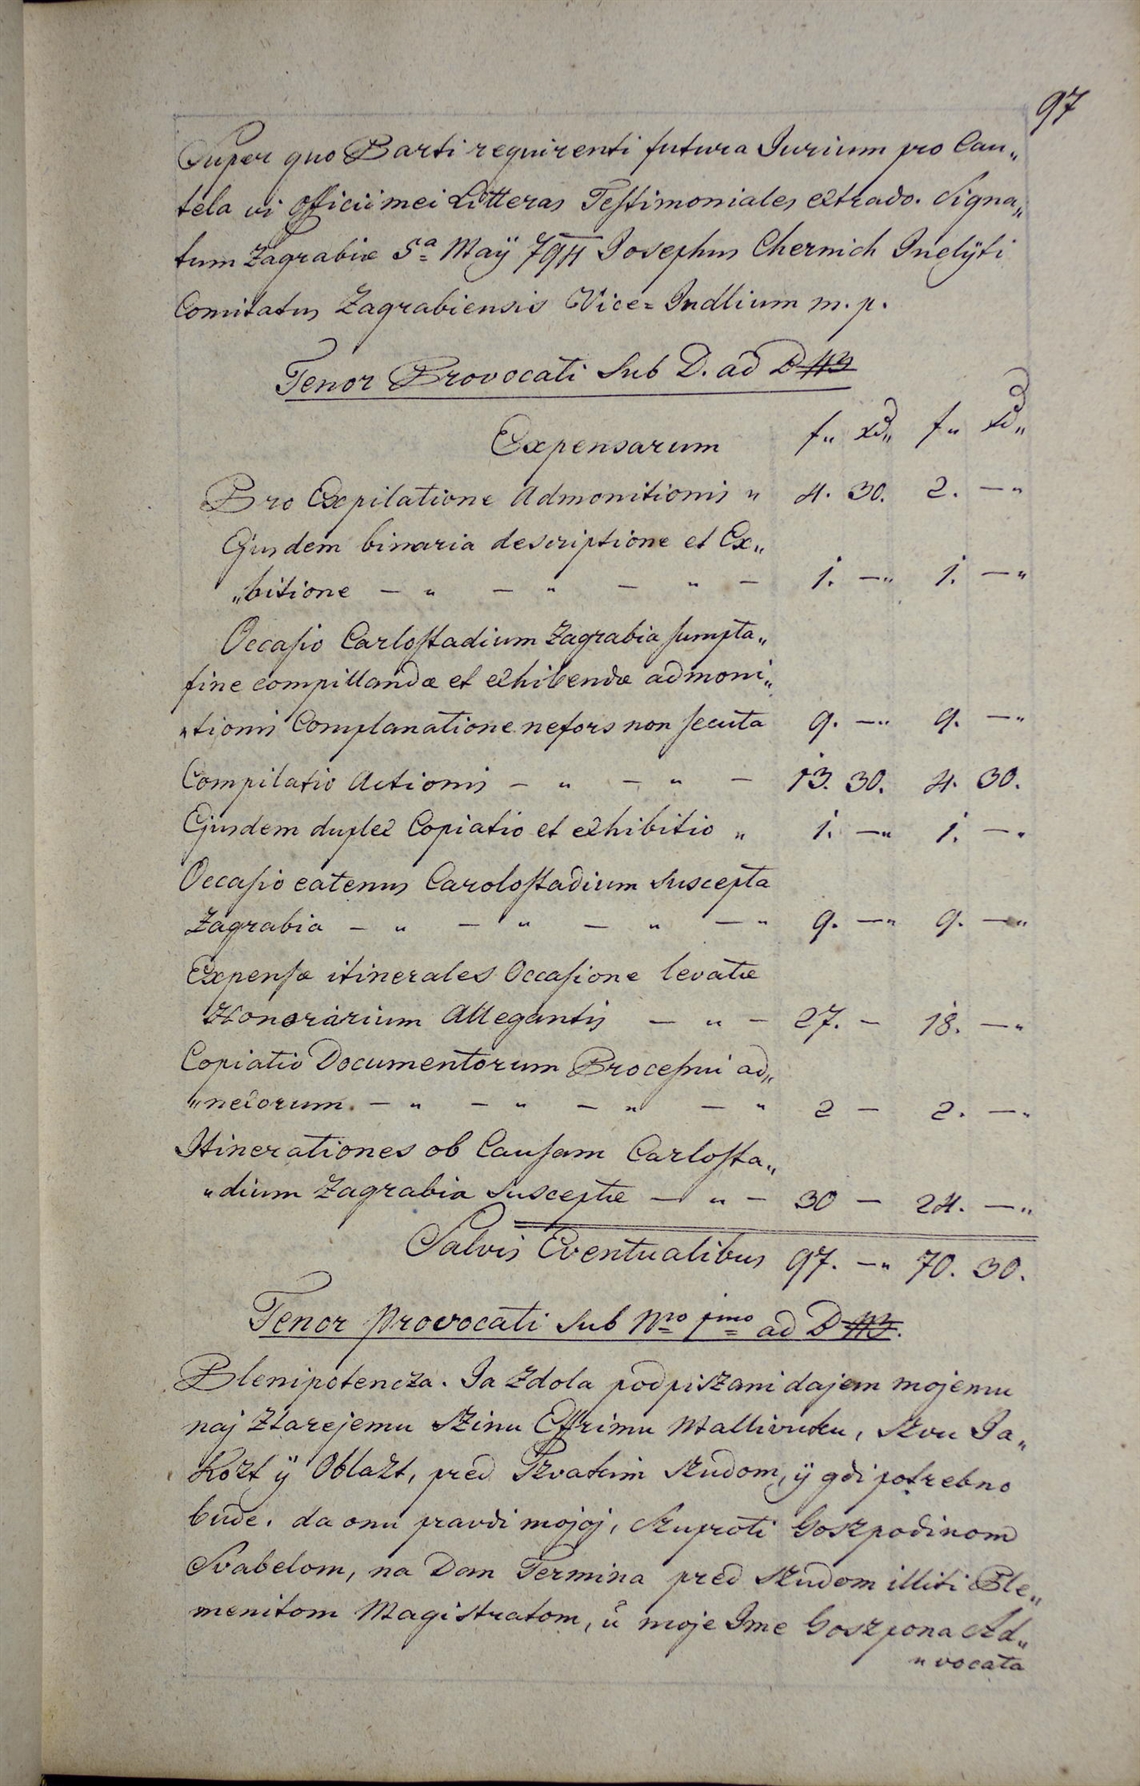 97
Super quo Parti requirenti futura Jurium pro Cau„
tela vi Officii mei Litteras Teſtimoniales extrado. Signa„
tum Zagrabiæ 5a May 794 Josephus Chernich Inclÿti
Comitatus Zagrabiensis Vice= Judlium m. p.
Tenor Provocati sub D. ad D
Expensarum f„ xd„ f„ xd„
Pro Expilatione Admonitionis „ 4. 30. 2. —„
Ejusdem binaria descriptione et Ex„
„bitione — „ — „ — „ — 1. —„ 1. —„
Occaſio Carloſtadium Zagrabia ſumpta„
fine compillandæ et exhibendæ admoni„
„tionis Complanatione nefors non ſecuta 9. —„ 9. —„
Compilatio Actionis — „ — „ — 13. 30. 4. 30.
Ejusdem duplex Copiatio et exhibitio „ 1. —„ 1. —„
Occaſio eatenus Caroloſtadium suscepta
Zagrabia — „ — „ — „ — „ 9. —„ 9. —„
Expenſæ itinerales Occaſione levatæ
Honorarium Allegantis — „ — 27. — 18. —„
Copiatio Documentorum Proceſsui ad„
„nexorum. — „ — „ — „ — „ 2 — 2. —„
Itinerationes ob Cauſam Carloſta„
„dium Zagrabia susceptæ — „ — 30 — 24. —„
Salvis Eventualibus 97. —„ 70. 30.
Tenor Provocati sub Nro jmo ad D
Plenipotencza. Ja Zdola podpiszani dajem mojemu
naj Ztarejemu Szinu Effrimu Mallivuku, Szvu Ja„
kozt ÿ Oblazt, pred Prvatim Szudom, ÿ gdi potrebno
bude. da onu pravdi mojoj, Szuproti Goszpodinom
Svabelom, na Dan Termina pred Szudom illiti Ple„
menitom Magistratom, ú moje Ime Goszpona Ad„
„vocata